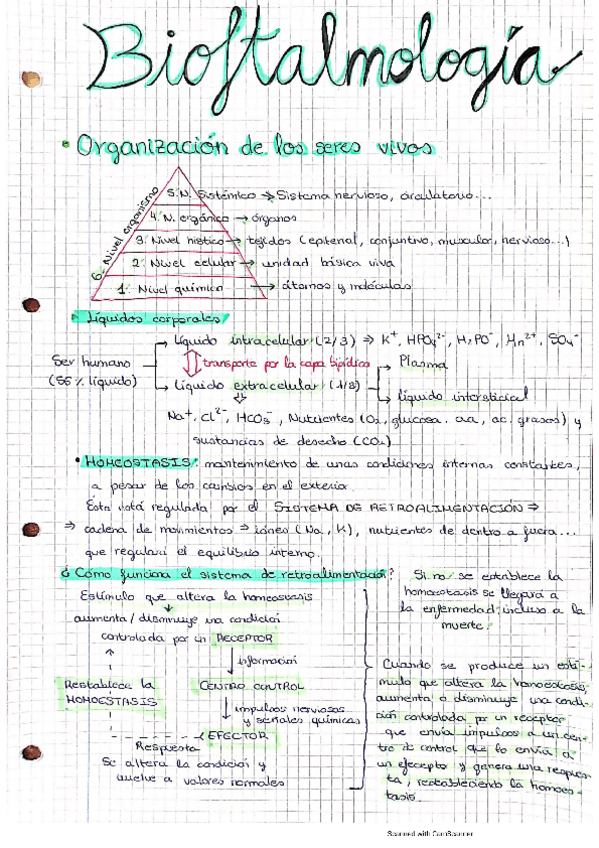 Bioftalmología
• Organización de los seres vivos
6. Nivel organismo
5. N. Sistémico → Sistema nervioso, circulatorio...
4. N. orgánico → órganos
3. Nivel hístico → tejidos (epitelial, conjuntivo, muscular, nervioso...)
2. Nivel celular → unidad básica viva
1. Nivel químico → átomos y moléculas
Líquidos corporales
Líquido intracelular (2/3) ⇒ K⁺, HPO₄²⁻, H₂PO⁻, Mn²⁺, SO₄⁻
Ser humano
(56% líquido)
transporte por la capa lipídica
Plasma
Líquido extracelular (1/3)
líquido intersticial
Na⁺, Cl²⁻, HCO₃⁻, Nutrientes (O₂, glucosa, aa, ac. grasos) y
sustancias de desecho (CO₂)
• HOMEOSTASIS: mantenimiento de unas condiciones internas constantes,
a pesar de los cambios en el exterior.
Esta está regulada por el SISTEMA DE RETROALIMENTACIÓN ⇒
⇒ cadena de movimientos ⇒ iones (Na, K), nutrientes de dentro a fuera...
que regulan el equilibrio interno.
¿Cómo funciona el sistema de retroalimentación?
Estímulo que altera la homeostasis
aumenta/disminuye una condición
controlada por un RECEPTOR
información
Restablece la
HOMOESTASIS
CENTRO CONTROL
impulsos nerviosos
y señales químicas
EFECTOR
Respuesta
Se altera la condición y
vuelve a valores normales
Si no se establece la
homeostasis se llegará a
la enfermedad, incluso a la
muerte.
Cuando se produce un estí-
mulo que altera la homoestasis,
aumenta o disminuye una condi-
ción controlada por un receptor
que envía impulsos a un cen-
tro de control que lo envía a
un efecepto y genera una respues-
ta, restableciendo la homeos-
tasis.
Scanned with CamScanner